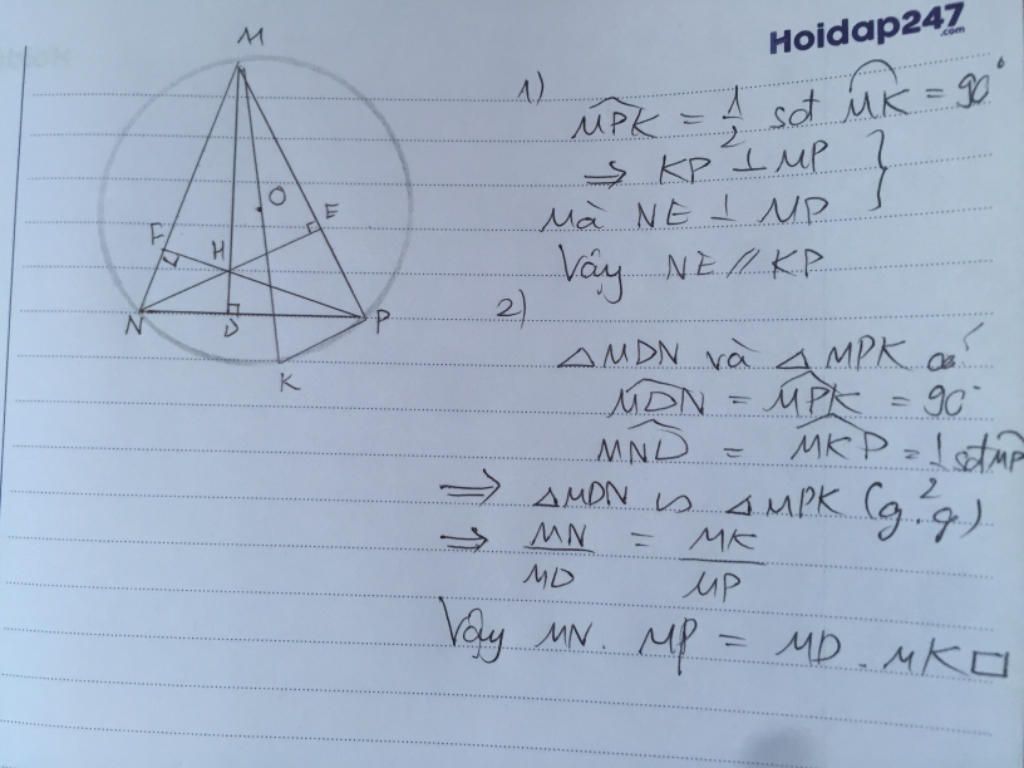 Hoidap247
.com
M
O
E
F
H
N
D
P
K
1)
MPK = 1/2 sđ MK = 90°
⇒ KP ⊥ MP
Mà NE ⊥ MP
Vậy NE // KP
2)
△MDN và △MPK có
MDN = MPK = 90°
MND = MKP = 1/2 sđ MP
⇒ △MDN ∽ △MPK (g.g)
⇒ MN/MD = MK/MP
Vậy MN. MP = MD. MK □